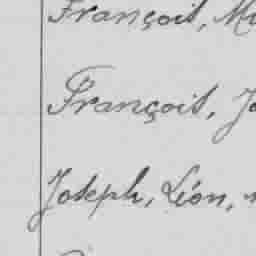 François,
François,
Joseph, Léon,